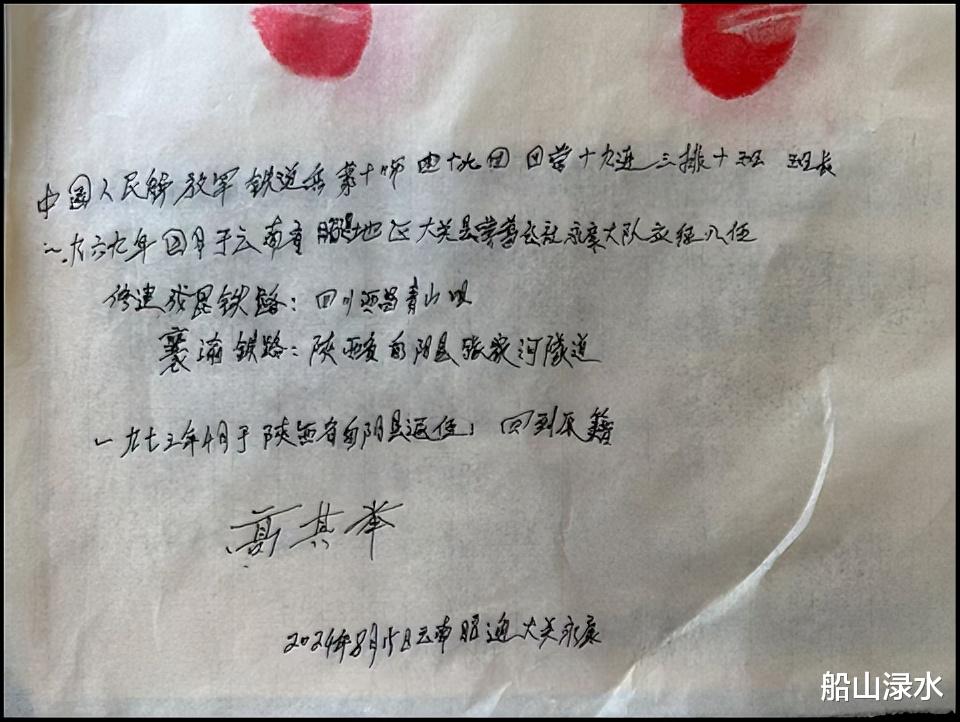 中国人民解放军铁道兵第十师四十九团四营十九连三排十班 班长
一九六九年四月于云南省昭通地区大关县 公社永康大队文经入伍
修建成昆铁路：四川西昌青山
襄渝铁路：陕西省旬阳县张家河隧道
一九七三年4月于陕西省旬阳县退伍，回到原籍
高其举
2024年8月15日云南昭通大关永康
船山渌水